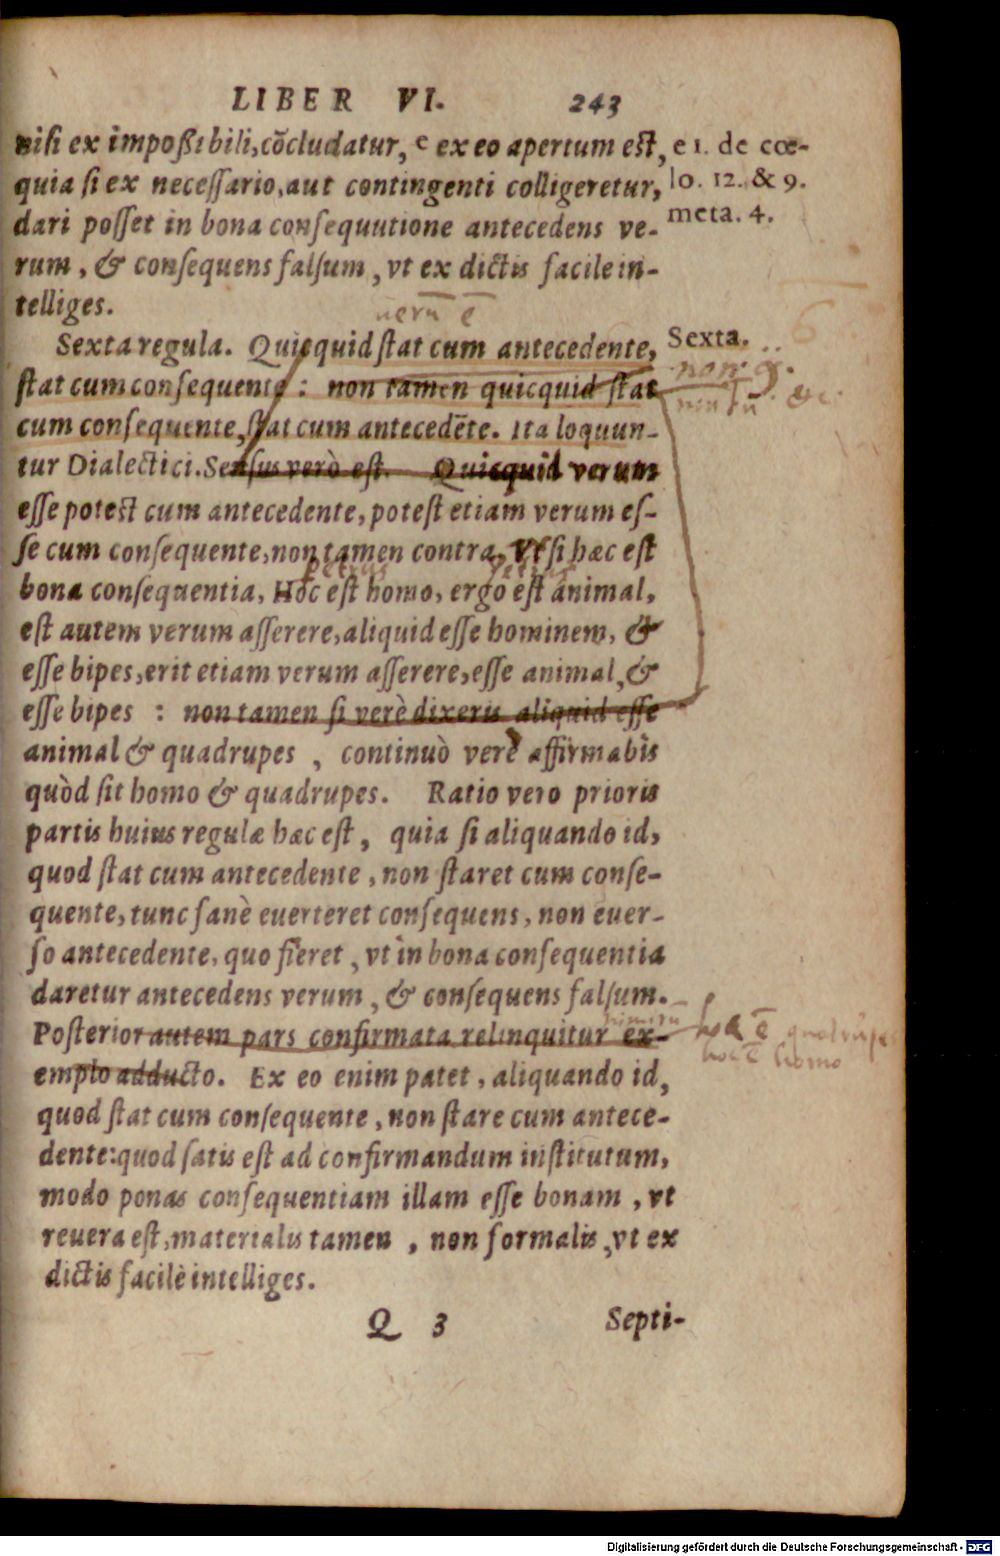 LIBER VI. 243
nisi ex impoßibili, cōcludatur, e ex eo apertum est,
e 1. de cœ-
quia si ex necessario, aut contingenti colligeretur,
lo. 12. & 9.
dari posset in bona consequutione antecedens ve-
meta. 4.
rum, & consequens falsum, vt ex dictis facile in-
telliges.
uerū ē
Sexta regula. Quicquid stat cum antecedente,
Sexta.
stat cum consequente: non tamen quicquid stat
cum consequente, stat cum antecedēte. Ita loquun-
tur Dialectici. Sensus verò est. Quicquid verum
esse potest cum antecedente, potest etiam verum es-
se cum consequente, non tamen contra, vt si hæc est
petrus petrus
bona consequentia, Hoc est homo, ergo est animal,
est autem verum asserere, aliquid esse hominem, &
esse bipes, erit etiam verum asserere, esse animal, &
esse bipes : non tamen si verè dixeris aliquid esse
animal & quadrupes, continuò verè affirmabis
quòd sit homo & quadrupes. Ratio vero prioris
partis huius regulæ hæc est, quia si aliquando id,
quod stat cum antecedente, non staret cum conse-
quente, tunc sanè euerteret consequens, non euer-
so antecedente, quo fieret, vt in bona consequentia
daretur antecedens verum, & consequens falsum.
Posterior autem pars confirmata relinquitur ex-
hoc ē quadrupes
hoc ē homo
emplo adducto. Ex eo enim patet, aliquando id,
quod stat cum consequente, non stare cum antece-
dente: quod satis est ad confirmandum institutum,
modo ponas consequentiam illam esse bonam, vt
reuera est, materialis tamen, non formalis, vt ex
dictis facilè intelliges.
Q 3 Septi-
Digitalisierung gefördert durch die Deutsche Forschungsgemeinschaft - DFG